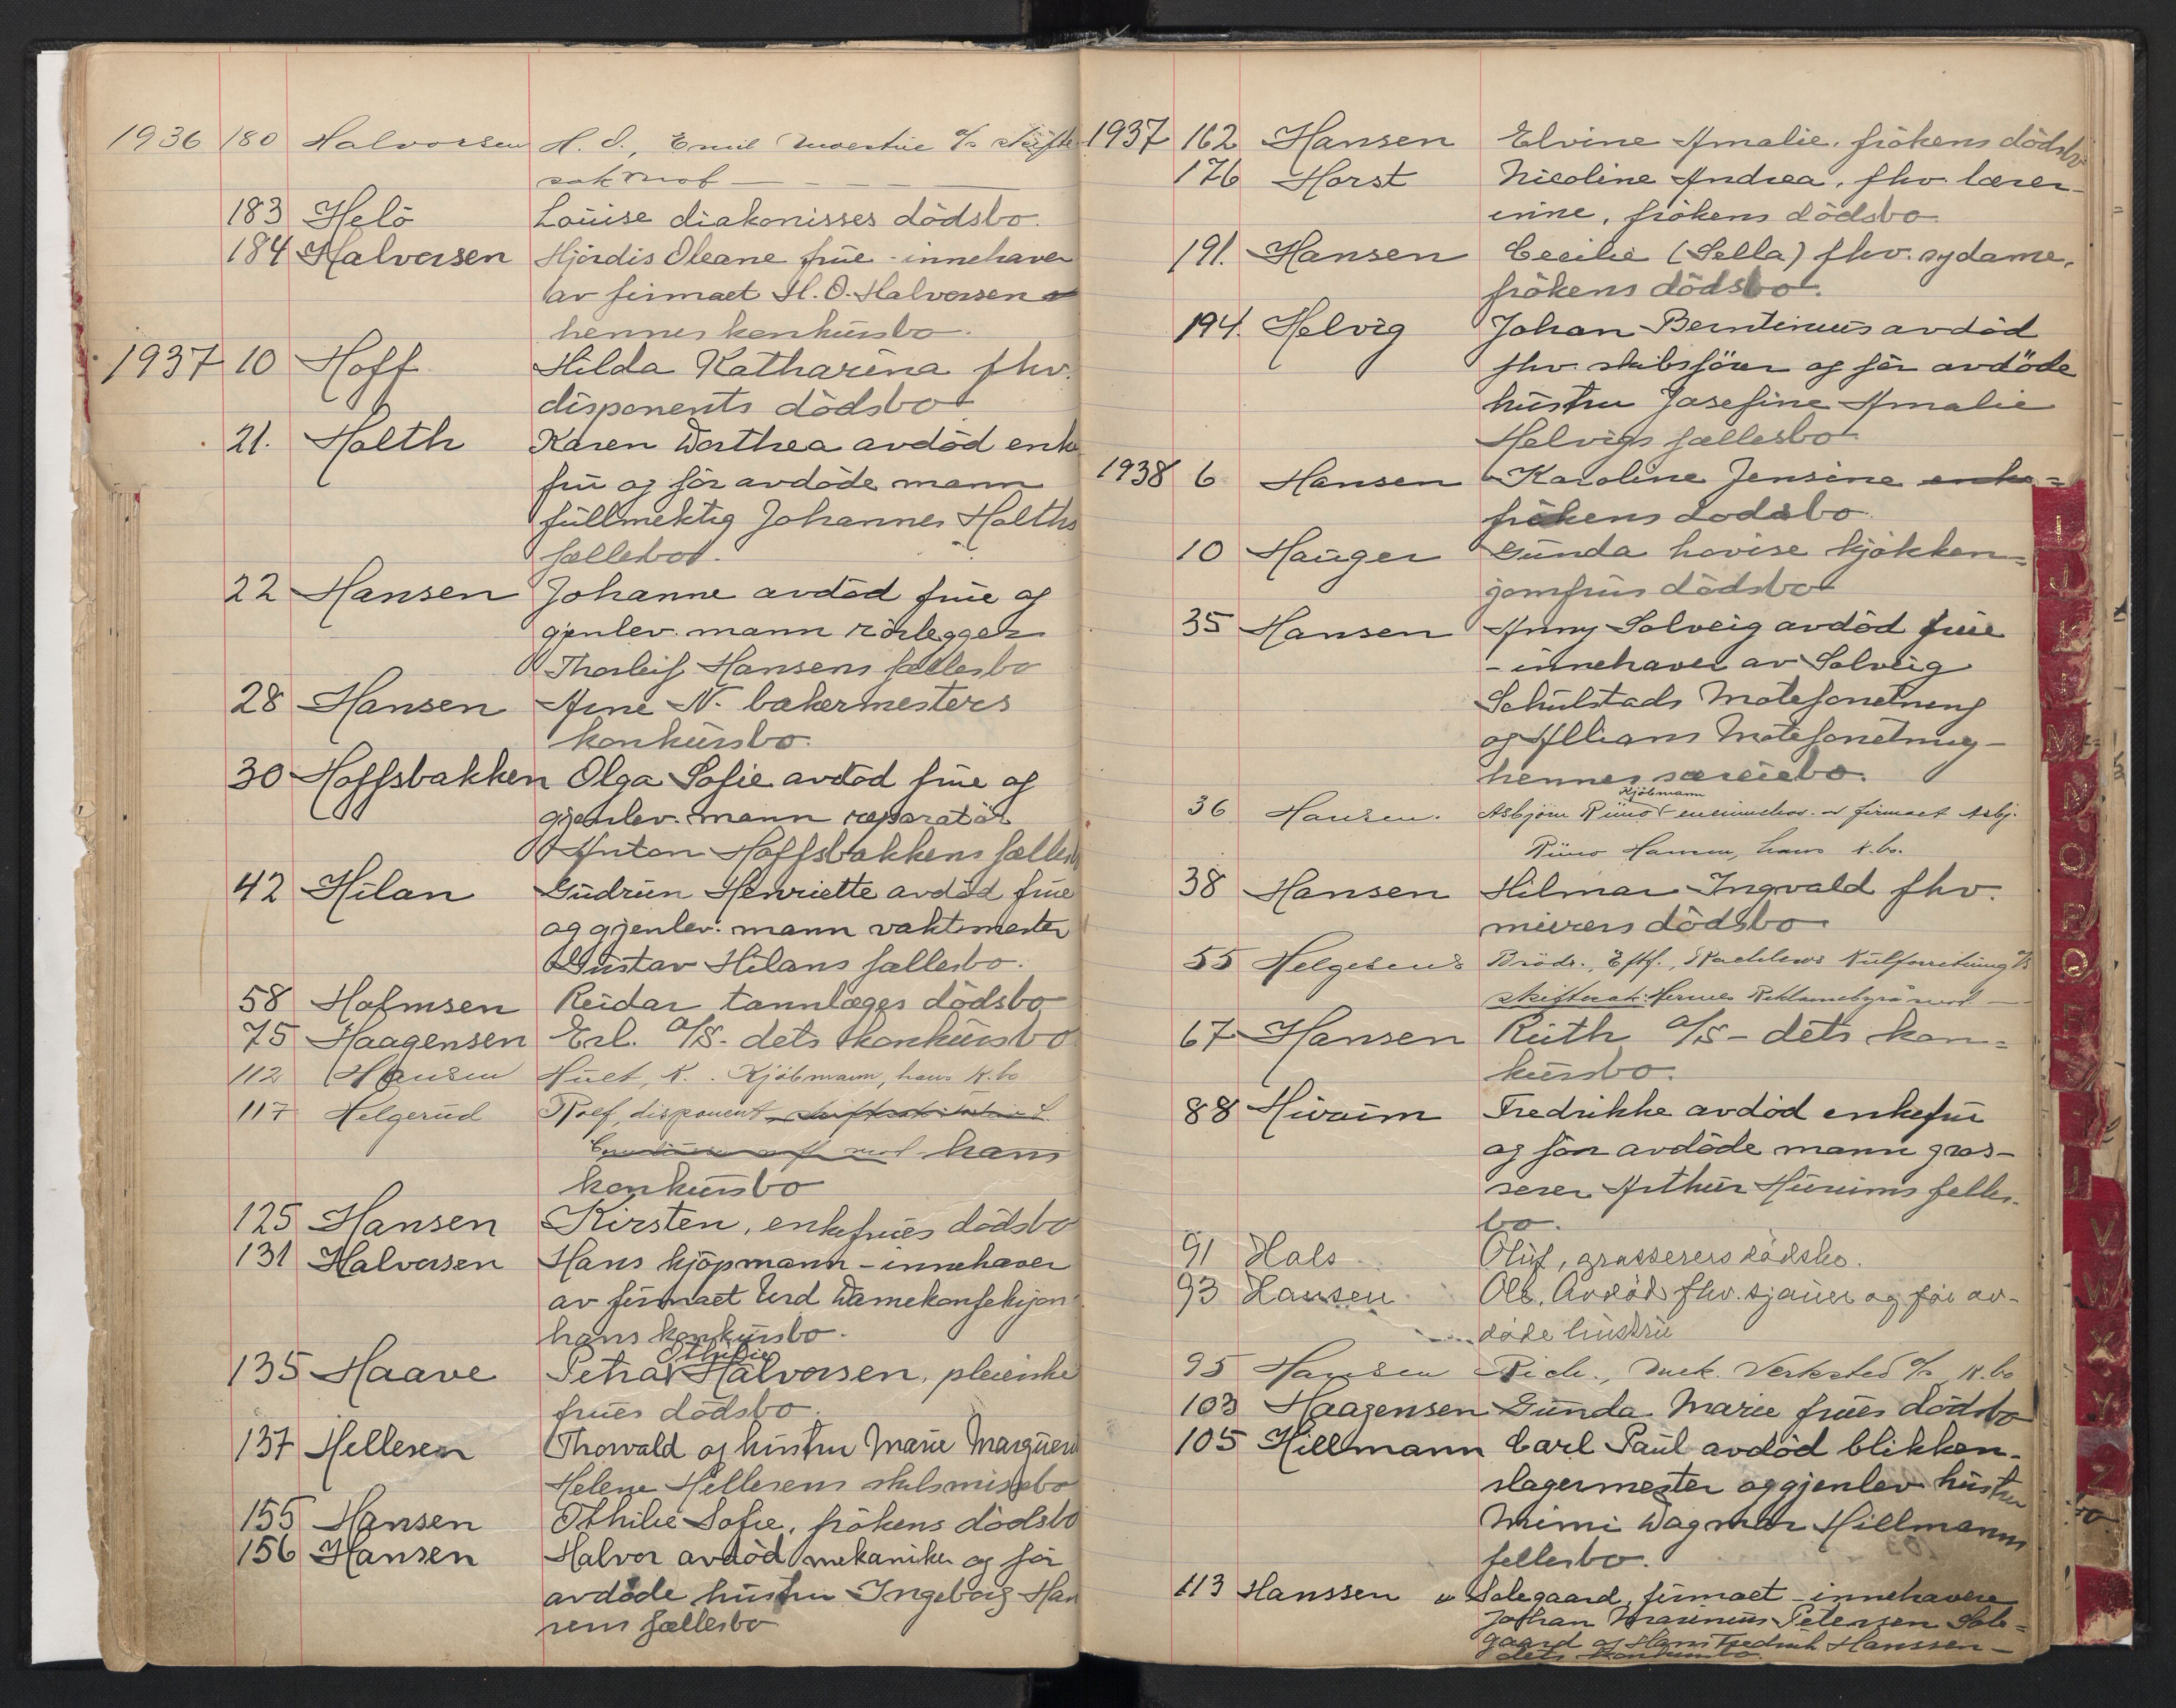 1936 180 Halvorsen H. O., Emil Moestue A/s skifte
sak mot —
183 Helö Louise diakonisses dödsbo.
184 Halvorsen Hjördis Oleane frue - innehaver
av firmaet H. O. Halvorsen
hennes konkursbo.
1937 10 Hoff Hilda Katharina fhv.
disponents dödsbo
21. Holth Karen Dorthea avdöd enke
fru og för avdöde mann
fullmektig Johannes Holths
fællesbo.
22 Hansen Johanne avdöd frue og
gjenlev. mann rörlegger
Thorleif Hansens fællesbo
28 Hansen Arne N. bakermesters
konkursbo.
30 Hoffsbakken Olga Sofie avdöd frue og
gjenlev. mann reparatör
Anton Hoffsbakkens fællesb
42 Hilan Gudrun Henriette avdöd frue
og gjenlev. mann vaktmester
Gustav Hilans fællesbo.
58 Holmsen Reidar tannlæges dödsbo
75 Haagensen Erl. A/S - dets konkursbo
112 Hansen K. Kjöbmann, hans K.bo
117 Helgerud Rolf, disponent
mot hans
konkursbo
125 Hansen Kirsten, enkefrues dödsbo
131 Halvorsen Hans kjöpmann - innehaver
av firmaet Urd Damekonfeksjon
hans konkursbo.
Othilie
135 Haave Petra Halvorsen, pleierske
frues dödsbo.
137 Hellesen Thorvald og hustru Marie
Helene Hellesens skilsmissebo
155 Hansen Othilie Sofie, frökens dödsbo
156 Hansen Halvor avdöd mekaniker og för
avdöde hustru Ingeborg Han
sens fællesbo
1937 162 Hansen Elvine Amalie, frökens dödsbo
176 Horst Nicoline Andrea, fhv. lærer-
inne, frökens dödsbo
191. Hansen Cecilie (Sella) fhv. sydame,
frökens dödsbo.
194. Helvig Johan Berntinus avdöd
fhv. skibsförer og för avdöde
hustru Josefine Amalie
Helvigs fællesbo
1938 6 Hansen Karoline Jensine enke=
frökens dodsbo
10 Hauger Gunda Lovise kjökken=
jomfrus dödsbo
35 Hansen Anny Solveig avdöd frue
- innehaver av Solveig
Schulstads Moteforretning
og Moteforretning -
hennes særeiebo.
Kjöbmann
36 Hansen. Asbjörn Runo eneinnehav. av firmaet Asbj.
Runo Hansen, hans K.bo.
38 Hansen Hilmar Ingvald fhv.
murers dödsbo
55 Helgesens Brödr., Eftf., Kulforretning A/S
skiftesak: Hermes Reklamebyrå mot —
67 Hansen Ruth A/S - dets kon=
kursbo.
88 Huruim Fredrikke avdöd enkefru
og för avdöde mann gros-
serer Arthur Huruims felles-
bo.
91 Hals Oluf, grosserers dödsbo.
93 Hansen Ole, Avdöd fhv. sjauer og för av-
döde hustru
95 Hansen Rich., Mek. Verksted A/s K.bo
103 Haagensen Gunda Marie frues dödsbo
105 Hillmann Carl Paul avdöd blikken-
slagermester og gjenlev. hustru
Mimi Dagmar Hillmanns
fellesbo.
113 Hanssen & Solegaard, firmaet - innehavere
Johan Petersen Sole=
gaard og Hans Fredrik Hanssen -
dets konkursbo.
I
J
K
L
M
N
O
P
Q
R
S
T
U
V
W
X
Y
Z